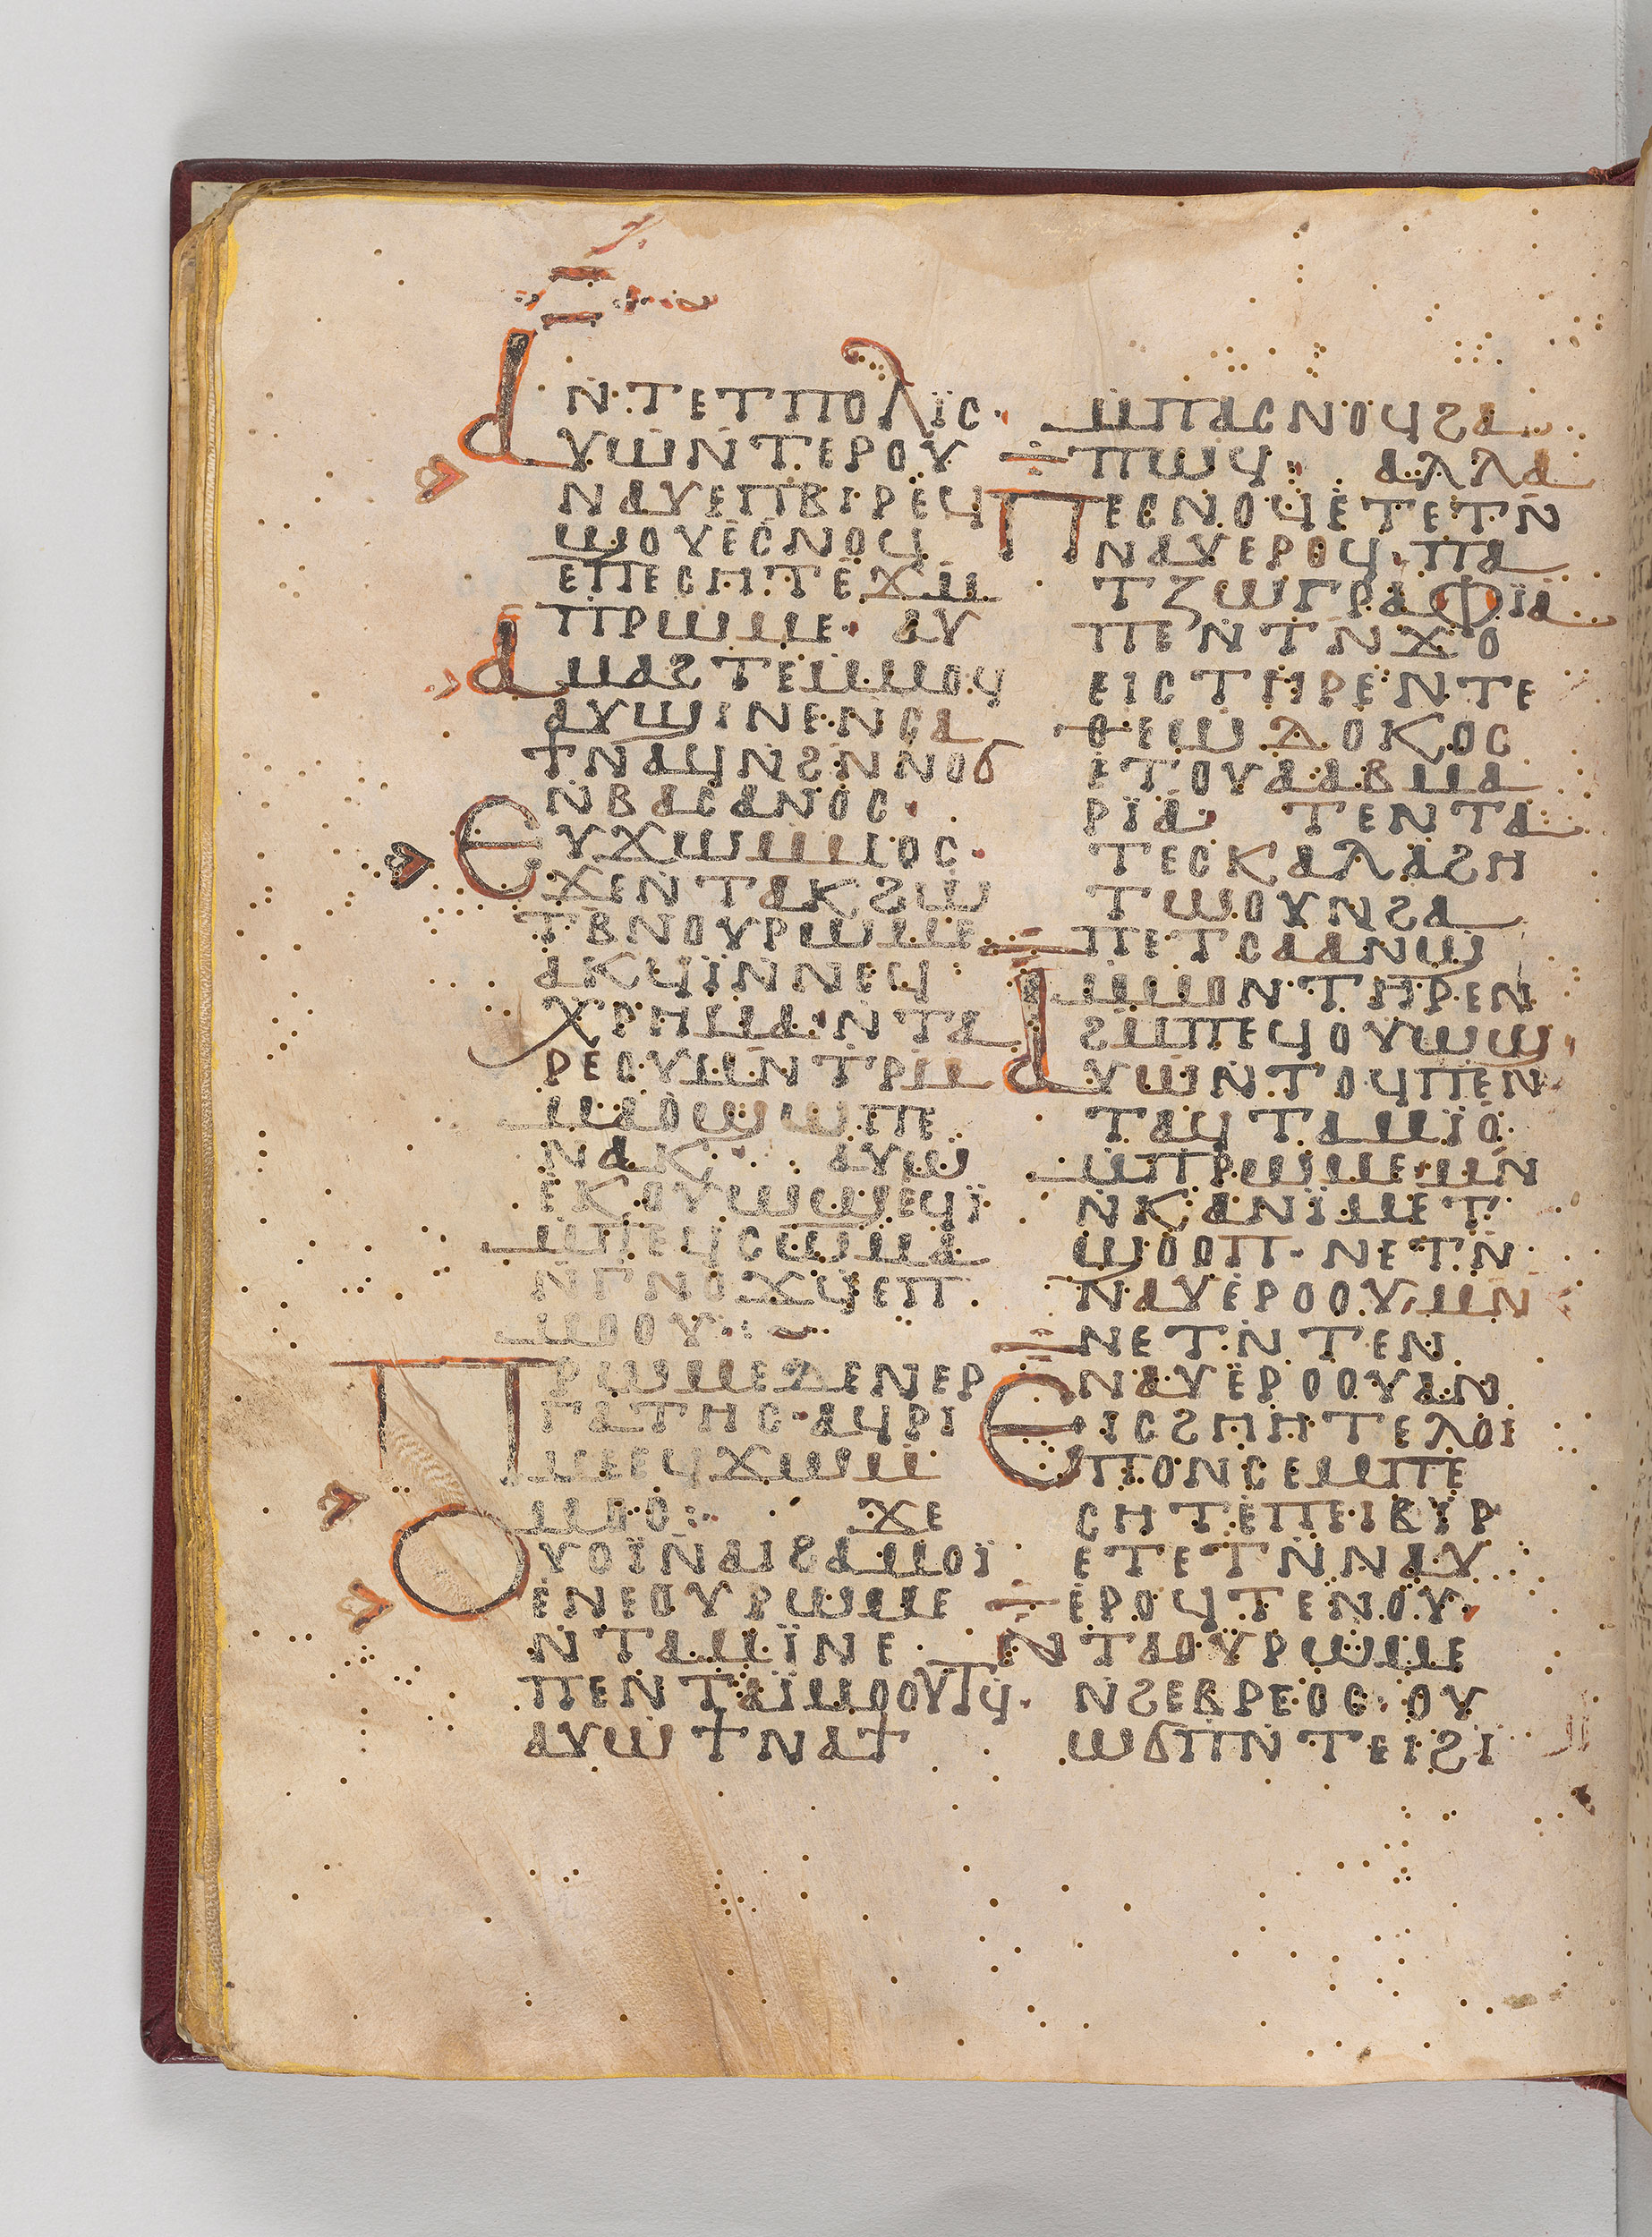 ⲝ
ⲁⲛⲧⲉⲧⲡⲟⲗⲓⲥ·
ⲩⲱⲛⲧⲉⲣⲟⲩ
ⲛⲁⲩⲉⲡⲃⲓⲣⲉϥ
ϣⲟⲩⲉⲥⲛⲟϥ
ⲉⲡⲉⲥⲏⲧⲉϫⲙ
ⲡⲣⲱⲙⲉ· ⲁⲩ
ⲁⲙⲁϩⲧⲉⲙⲙⲟϥ
ⲁⲩϣⲓⲛⲉⲛⲥⲁ
ϯⲛⲁϥⲛϩⲛⲛⲟϭ
ⲛⲃⲁⲥⲁⲛⲟⲥ·
ⲉⲩϫⲱⲙⲙⲟⲥ·
ϫⲉⲛⲧⲁⲕϩⲱ
ⲧⲃⲛⲟⲩⲣⲱⲙⲉ
ⲁⲕϥⲓⲛⲛⲉϥ
ⲭⲣⲏⲙⲁ·ⲛⲧⲁ
ⲣⲉⲟⲩⲙⲛⲧⲣⲙ
ⲙⲁⲟϣⲱⲡⲉ
ⲛⲁⲕ· ⲁⲩⲱ
ⲉⲕⲟⲩⲱϣⲉϥⲓ
ⲙⲡⲉϥⲥⲱⲙⲁ
ⲛⲅⲛⲟϫϥⲉⲡ
ⲙⲟⲟⲩ:~
ⲡⲣⲱⲙⲉⲇⲉⲛⲉⲣ
ⲅⲁⲧⲏⲥ·ⲁϥⲣⲓ
ⲙⲉⲉϥϫⲱⲙ
ⲙⲟⲥ: ϫⲉ
ⲟⲩⲟⲓⲛⲁⲓϩⲁⲙⲟⲓ
ⲉⲛⲉⲟⲩⲣⲱⲙⲉ
ⲛⲧⲁⲙⲓⲛⲉ·
ⲡⲉⲛⲧⲁⲓⲙⲟⲟⲩⲧϥ·
ⲁⲩⲱϯⲛⲁϯ
ⲙⲡⲁⲥⲛⲟϥϩⲁ
ⲡⲱϥ: ⲁⲗⲗⲁ
ⲡⲉⲥⲛⲟϥⲉⲧⲉⲧⲛ
ⲛⲁⲩⲉⲣⲟϥ·ⲡⲁ
ⲧⲍⲱⲅⲣⲁⲫⲓⲁ
ⲡⲉⲛⲧⲛϫⲟ
ⲉⲓⲥⲧⲏⲣⲉⲛⲧⲉ
ⲑⲉⲱⲇⲟⲕⲟⲥ
ⲉⲧⲟⲩⲁⲁⲃⲙⲁ
ⲣⲓⲁ· ⲧⲉⲛⲧⲁ
ⲧⲉⲥⲕⲁⲗⲁϩⲏ
ⲧⲱⲟⲩⲛϩⲁ
ⲡⲉⲧⲥⲁⲁⲛϣ
ⲙⲙⲟⲛⲧⲏⲣⲉⲛ
ϩⲙⲡⲉϥⲟⲩⲱϣ
ⲁⲩⲱⲛⲧⲟϥⲡⲉⲛ
ⲧⲁϥⲧⲁⲙⲓⲟ
ⲙⲡⲣⲱⲙⲉ·ⲙⲛ
ⲛⲕⲁⲛⲓⲙⲉⲧ
ϣⲟⲟⲡ·ⲛⲉⲧⲛ
ⲛⲁⲩⲉⲣⲟⲟⲩ·ⲙⲛ
ⲛⲉⲧⲛⲧⲉⲛ
ⲛⲁⲩⲉⲣⲟⲟⲩⲁⲛ
ⲉⲓⲥϩⲏⲏⲧⲉⲗⲟⲓ
ⲡⲟⲛⲥⲉⲙⲡⲉ
ⲥⲏⲧⲉⲡⲉⲓⲃⲓⲣ
ⲉⲧⲉⲧⲛⲛⲁⲩ
ⲉⲣⲟϥⲧⲉⲛⲟⲩ·
ⲛⲧⲁⲟⲩⲣⲱⲙⲉ
ⲛϩⲉⲃⲣⲉⲟⲥ·ⲟⲩ
ⲱϭⲡⲛⲧⲉⲓϩⲓ